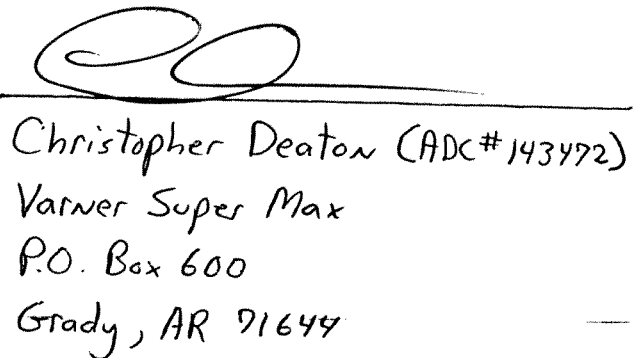 Christopher Deaton (ADC# 143472)
Varner Super Max
P.O. Box 600
Grady, AR 71644